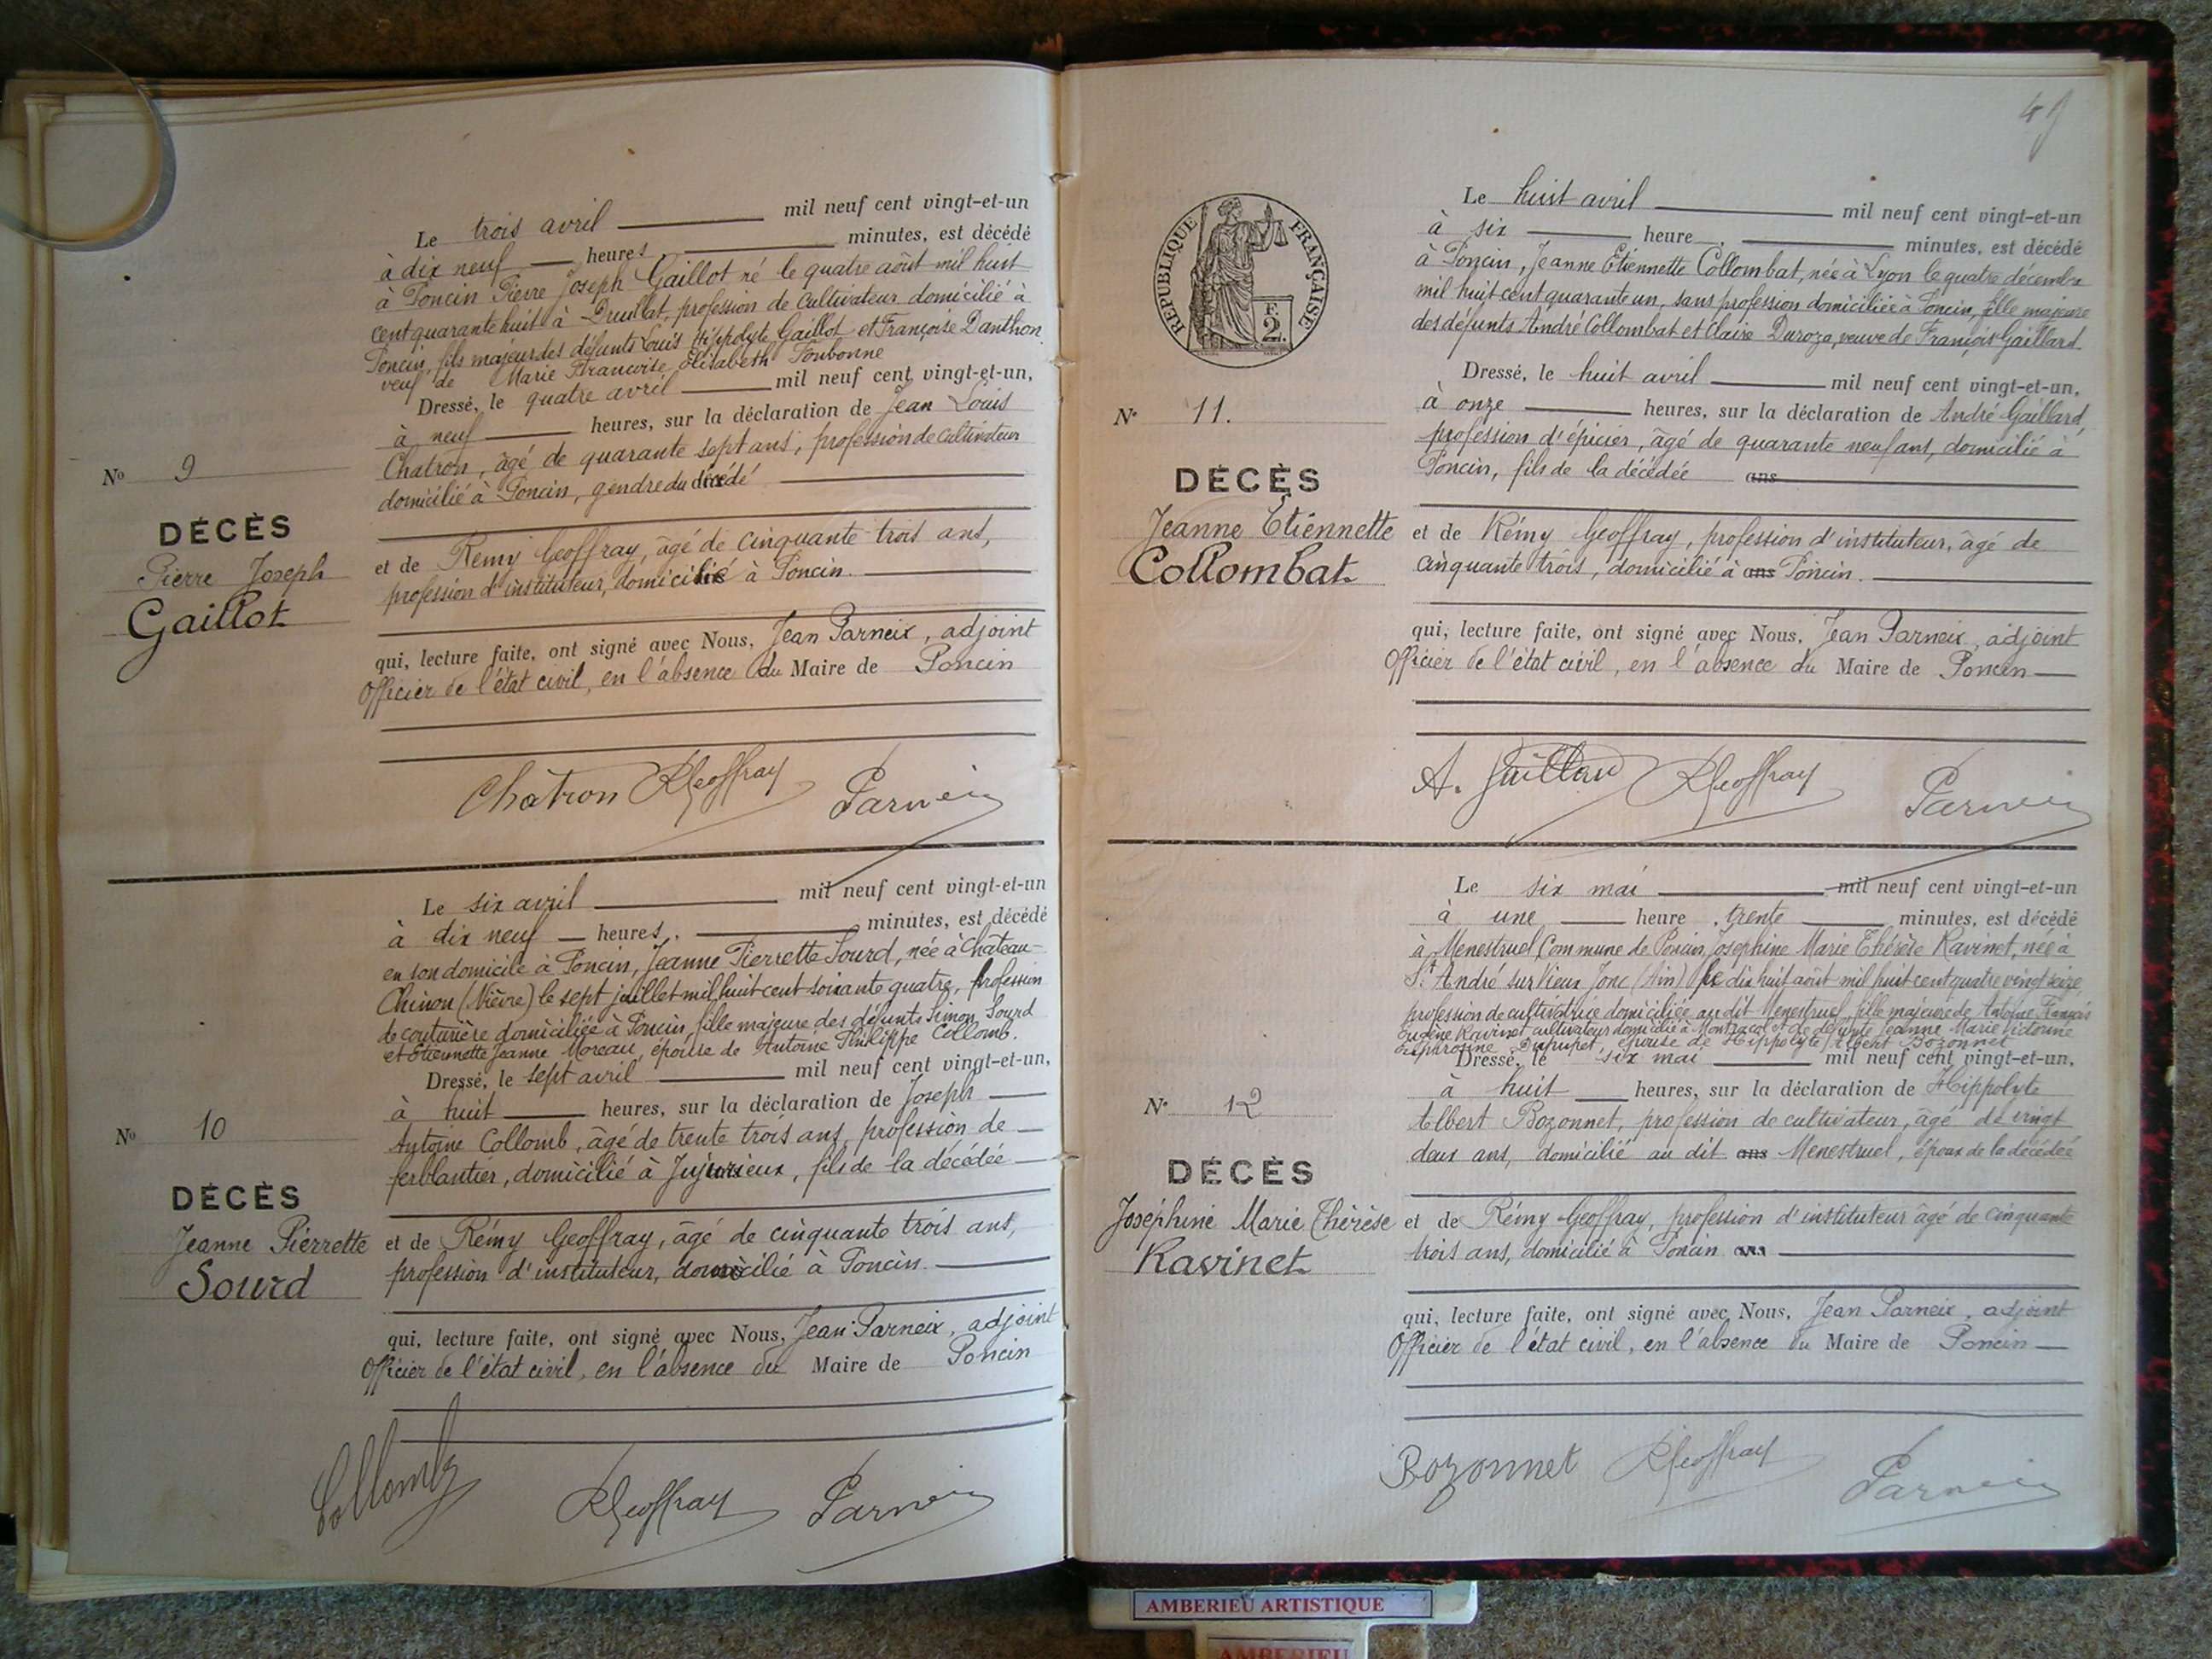 Nº 9
DÉCÈS
Pierre Joseph
Gaillot
Le trois avril mil neuf cent vingt-et-un
à dix neuf heures, minutes, est décédé
à Poncin Pierre Joseph Gaillot né le quatre août mil huit
cent quarante huit à Druillat, profession de cultivateur domicilié à
Poncin, fils majeur des défunts Louis Hippolyte Gaillot et Françoise Danthon
veuf de Marie Francoise Elisabeth Foubonne
Dressé, le quatre avril mil neuf cent vingt-et-un,
à neuf heures, sur la déclaration de Jean Louis
Chatron, âgé de quarante sept ans, profession de cultivateur
domicilié à Poncin, gendre du décédé
et de Rémy Geoffray, âgé de cinquante trois ans,
profession d'instituteur, domicilié à Poncin.
qui, lecture faite, ont signé avec Nous, Jean Parneix, adjoint
Officier de l'état civil, en l'absence du Maire de Poncin
Chatron RGeoffray Parneix
Nº 10
DÉCÈS
Jeanne Pierrette
Sourd
Le six avril mil neuf cent vingt-et-un
à dix neuf heures, minutes, est décédé
en son domicile à Poncin, Jeanne Pierrette Sourd, née à Château-
Chinon (Nièvre) le sept juillet mil huit cent soixante quatre, profession
de couturière domiciliée à Poncin, fille majeure des défunts Simon Sourd
et Etiennette Jeanne Moreau, épouse de Antoine Philippe Collomb.
Dressé, le sept avril mil neuf cent vingt-et-un,
à huit heures, sur la déclaration de Joseph
Antoine Collomb, âgé de trente trois ans, profession de
ferblantier, domicilié à Jujurieux, fils de la décédée
et de Rémy Geoffray, âgé de cinquante trois ans,
profession d'instituteur, domicilié à Poncin.
qui, lecture faite, ont signé avec Nous, Jean Parneix, adjoint
Officier de l'état civil, en l'absence du Maire de Poncin
Collomb RGeoffray Parneix
49
REPUBLIQUE FRANÇAISE
F.
2.
Nº 11.
DÉCÈS
Jeanne Etiennette
Collombat
Le huit avril mil neuf cent vingt-et-un
à six heure, minutes, est décédé
à Poncin, Jeanne Etiennette Collombat, née à Lyon le quatre décembre
mil huit cent quarante un, sans profession domiciliée à Poncin, fille majeure
des défunts André Collombat et Claire Duroza, veuve de François Gaillard.
Dressé, le huit avril mil neuf cent vingt-et-un,
à onze heures, sur la déclaration de André Gaillard,
profession d'épicier, âgé de quarante neuf ans, domicilié à
Poncin, fils de la décédée ans
et de Rémy Geoffray, profession d'instituteur, âgé de
cinquante trois, domicilié à ans Poncin.
qui, lecture faite, ont signé avec Nous, Jean Parneix, adjoint
Officier de l'état civil, en l'absence du Maire de Poncin
A. Gaillard RGeoffray Parneix
Nº 12
DÉCÈS
Joséphine Marie Thérèse
Ravinet
Le six mai mil neuf cent vingt-et-un
à une heure, trente minutes, est décédé
à Menestruel, Commune de Poncin, Joséphine Marie Thérèse Ravinet, née à
St André sur Vieux Jonc (Ain) le dix huit août mil huit cent quatre vingt seize,
profession de cultivatrice domiciliée au dit Menestruel, fille majeure de Antoine François
Eugène Ravinet cultivateur domicilié à Montracol et de defunte Jeanne Marie Victorine
Euphrosine Dupupet, épouse de Hippolyte Albert Bozonnet
Dressé, le six mai mil neuf cent vingt-et-un,
à huit heures, sur la déclaration de Hippolyte
Albert Bozonnet, profession de cultivateur, âgé de vingt
deux ans, domicilié au dit ans Menestruel, époux de la décédée
et de Rémy Geoffray, profession d'instituteur âgé de cinquante
trois ans, domicilié à Poncin ans
qui, lecture faite, ont signé avec Nous, Jean Parneix, adjoint
Officier de l'état civil, en l'absence du Maire de Poncin
Bozonnet RGeoffray Parneix
AMBERIEU ARTISTIQUE
AMBERIEU